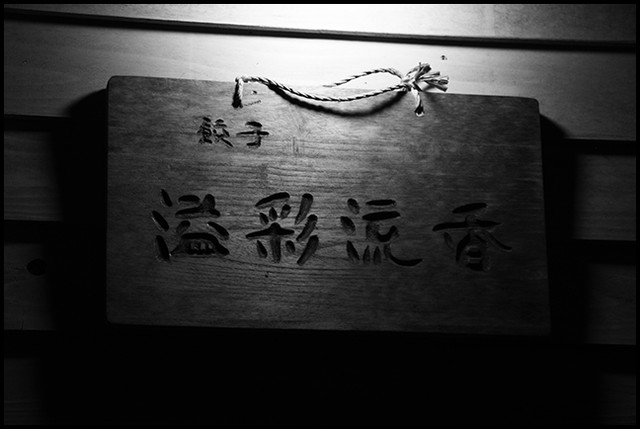 餃子
溢彩流香